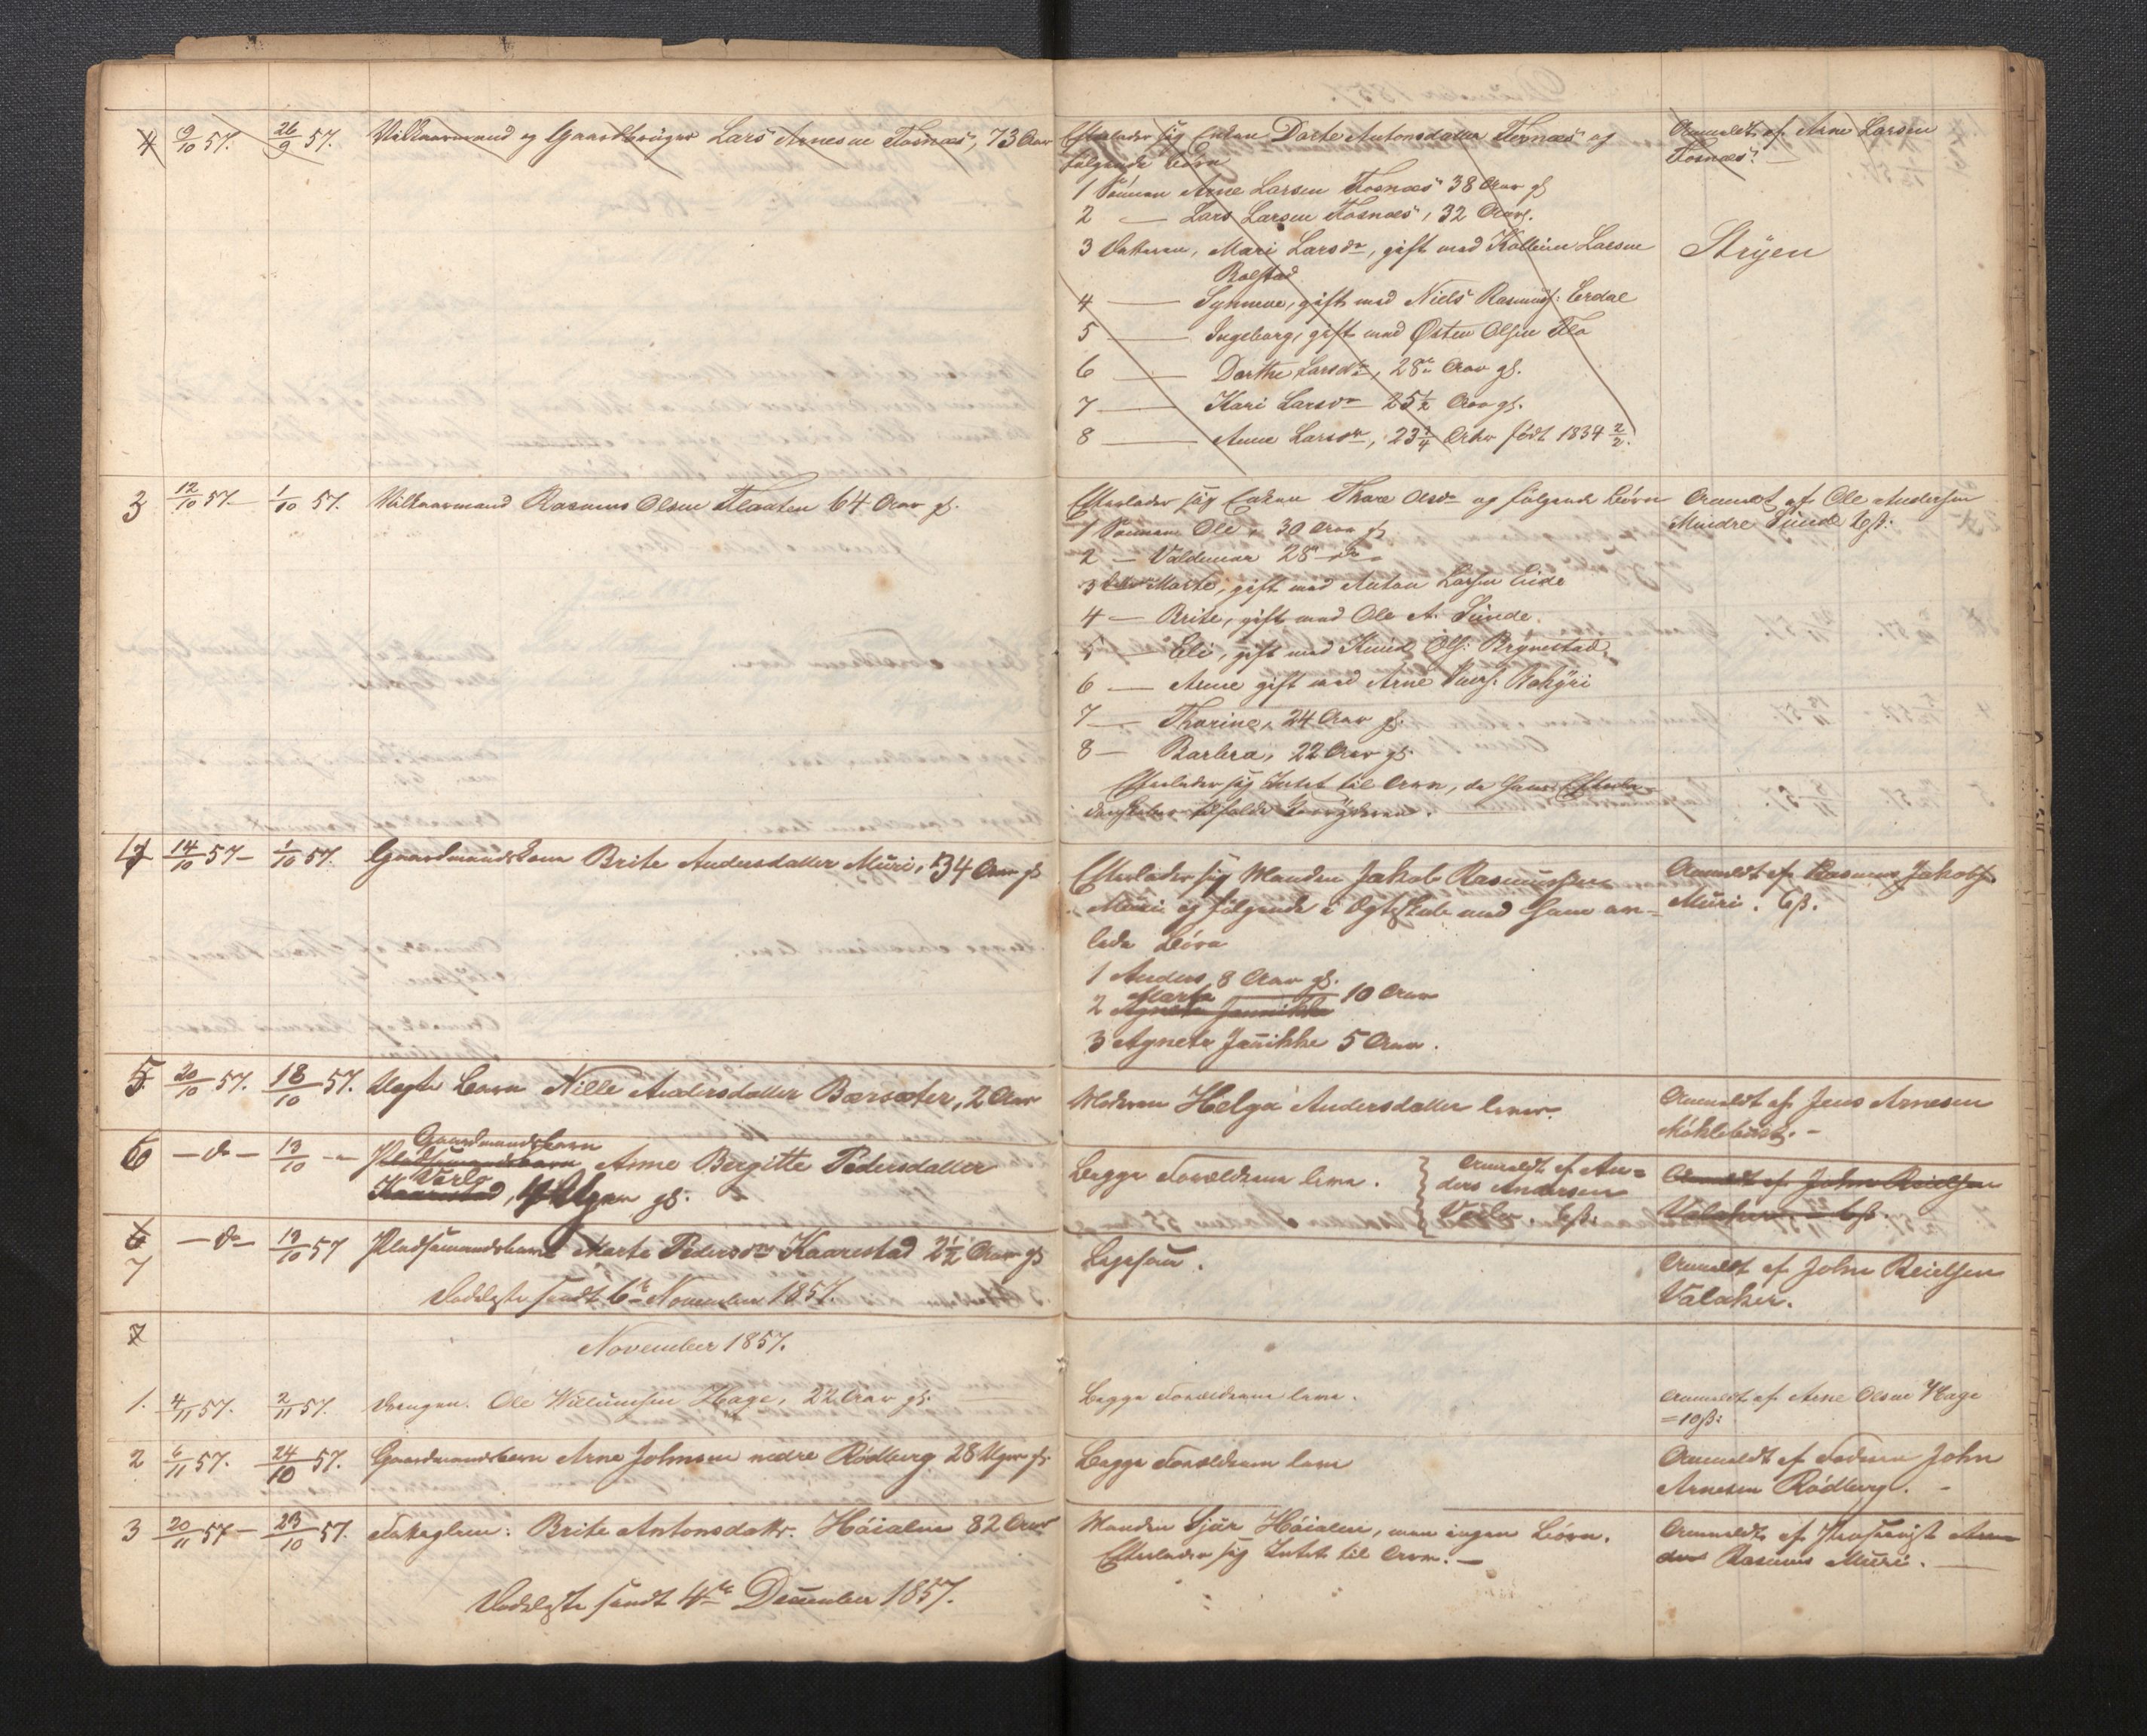 4 9/10 57. 26/9 57. Vilkaarmand og Gaardbruger Lars Arnesen Tosnæs, 73 Aar
Efterlader sig Enken Dorte Antonsdatter Tosnæs og
følgende Børn
1 Sønnen Arne Larsen Tosnæs 38 Aar gl
2 — Lars Larsen Tosnæs, 32 Aar gl.
3 Datteren, Mari Larsdr, gift med Kolbein Larsen
Bolstad
4 — Synneve, gift med Niels Rasmuss: Erdal
5 — Ingeborg, gift med Østen Olsen Flo
6 — Dorthe Larsdr, 28 Aar gl.
7 — Kari Larsdr 25½ Aar gl.
8 — Anne Larsdr, 23¾ Aar født 1834 2/2.
Anmeldt af Arne Larsen
Tosnæs.
Stryen
3 12/10 57 — 1/10 57. Vilkaarmand Rasmus Olsen Flaaten 64 Aar gl.
Efterlader sig Enken Thore Olsdr og følgende Børn
1 Sønnen Ole, 30 Aar gl
2 — Valdemar 28 — do —
3 Datter Marte, gift med Anton Larsen Eide
4 — Brite, gift med Ole A. Sunde.
5 — Eli, gift med Knud Ols: Brynestad
6 — Anne gift med Arne
7 — Thorine, 24 Aar gl.
8 — Barbra, 22 Aar gl.
Efterlader sig Intet til Arv, da hans
Anmeldt af Ole Andersen
Mindre Sunde 6ß.
4 14/10 57 — 1/10 57. Gaardmandskone Brite Andersdatter Muri, 34 Aar gl
Efterlader sig Manden Jakob Rasmussen
Muri og følgende i Ægteskab med ham av-
lede Børn
1 Anders 8 Aar gl.
Marte
2 Agnete Jannikke 10 Aar
3 Agnete Jannikke 5 Aar.
Anmeldt af Rasmus Jakobs.
Muri. 6ß.
5 20/10 57. 18/10 57. Uægte Barn Nille Andersdatter Bærsæter, 2 Aar
Moderen Helga Andersdatter lever.
Anmeldt af Jens Arnesen
Møklebust. —
6 — do — 13/10 — Gaardmandsbarn
Pladsmandsbarn Anne Bergitte Pedersdatter
Varlo
Kaarestad, 4 Uger gl.
Begge Forældrene leve.
Anmeldt af An-
ders Andersen
Varlo. 6ß.
Anmeldt af John Reielsen
Valaker 6ß
6 — do — 19/10 57 Pladsmandsbarn Marte Pedersdr Kaarestad 2½ Aar gl
7
Ligesaa.
Anmeldt af John Reielsen
Valaker.
Dødsliste sendt 6te November 1857.
7
November 1857.
1. 4/11 57. 2/11 57. Drengen. Ole Willumsen Hage, 22 Aar gl.
Begge Forældrene leve.
Anmeldt af Arne Olsen Hage
= 10ß:
2 6/11 57. 24/10 57. Gaardmandsbarn Arne Johnsen nedre Rødberg 28 Uger gl.
Begge Forældrene leve
Anmeldt af Faderen John
Arnesen Rødberg. —
3 20/11 57 — 23/10 57. Brite Antonsdattr. Høialm 82 Aar
Manden Sjur Høialm, men ingen Børn.
Efterlader sig Intet til Arv. —
Anmeldt af
Rasmus Muri. —
Dødsliste sendt 4de December 1857.